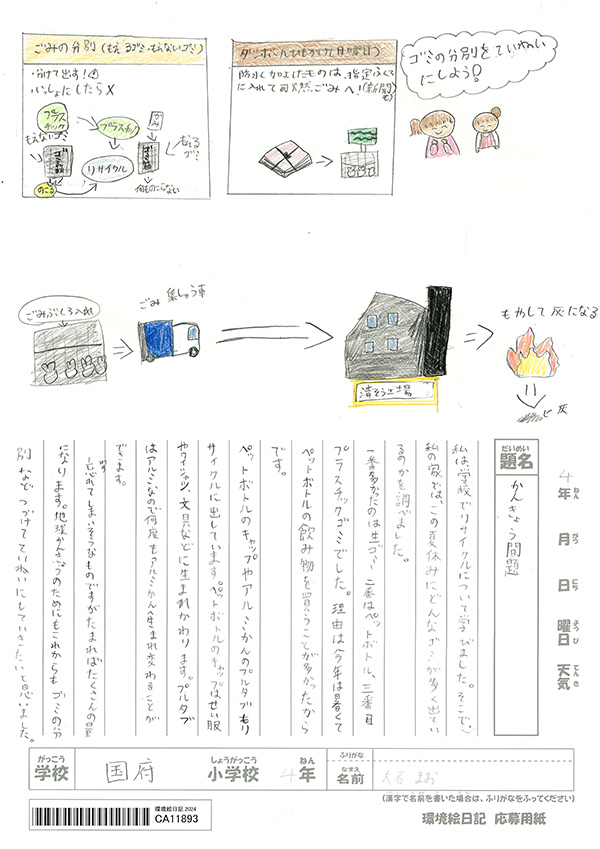 ごみの分別(もえるゴミ・もえないゴミ)
・分けて出す!
いっしょにしたら×
プラスチック
もえないゴミ
プラスチック
かみ
もえるゴミ
ゴミ箱
ゴミ箱
リサイクル
のこる
何ものこらない
ダンボールひもかけ(月曜日)
防水加工したものは、指定ふくろ
に入れて可燃ごみへ!(新聞も)
ゴミの分別をていねい
にしよう!
ごみぶくろ入れ
ごみ 集しゅう車
清そう工場
もやして灰になる
灰
4年 月 日 曜日 天気
ねん がつ にち ようび てんき
だいめい
題名
かんきょう問題
私は学校でリサイクルについて学びました。そこで、
私の家では、この夏休みにどんなゴミが多く出てい
るのかを調べました。
一番多かったのは生ゴミ、二番はペットボトル、三番目
プラスチックゴミでした。理由は今年は暑くて
ペットボトルの飲み物を買うことが多かったから
です。
ペットボトルのキャップやアルミかんのプルタブもリ
サイクルに出しています。ペットボトルのキャップはせい服
やワイシャツ、文具などに生まれかわります。プルタブ
はアルミなので何度もアルミかんへ生まれ変わることが
できます。
忘れてしまいそうなものですがたまればたくさんの量
になります。地球かんきょうのためにもこれからもゴミの分
別などつづけてていねいにしていきたいと思いました。
がっこう
学校
国府
しょうがっこう
小学校
4
ねん
年
ふりがな
なまえ
名前
まお
(漢字で名前を書いた場合は、ふりがなをふってください)
環境絵日記 2024
CA11893
環境絵日記 応募用紙